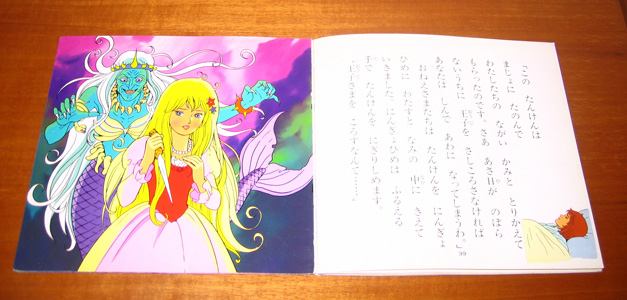 「この　たんけんは
まじょに　たのんで
わたしたちの　ながい　かみと　とりかえて
もらったのです。さあ　あさ日が　のぼら
ないうちに　王子を　さしころさなければ
あなたは　しんで　あわに　なってしまうわ。」
おねえさまたちは　たんけんを　にんぎょ
ひめに　わたすと　なみの　中に　きえて
いきました。にんぎょひめは　ふるえる
手で　たんけんを　にぎりしめます。
「王子さまを　ころすなんて……。